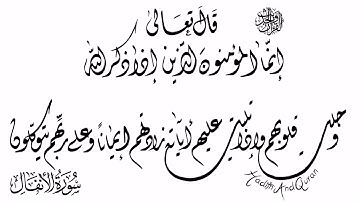 قَالَ تَعَالَى
إِنَّمَا الْمُؤْمِنُونَ الَّذِينَ إِذَا ذُكِرَ اللَّهُ
وَجِلَتْ قُلُوبُهُمْ وَإِذَا تُلِيَتْ عَلَيْهِمْ آيَاتُهُ زَادَتْهُمْ إِيمَانًا وَعَلَى رَبِّهِمْ يَتَوَكَّلُونَ
Hadith And Quran
سُورَةُ الأَنْفَال